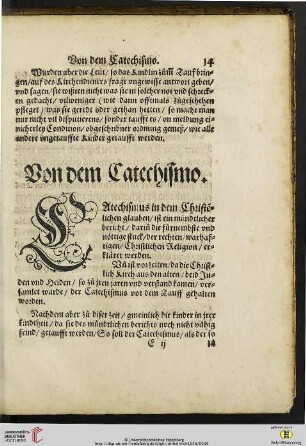 Von dem Catechismo. 14
Wurden aber die Leut / so das Kindlin zům Tauf brin-
gen / auf des Kirchendieners frage ungewisse antwort geben /
und sagen / sie wissen nicht was sie in solcher not und schreck-
en gedacht / vilweniger (wie dann oftmals zůgeschehen
pfleget) was sie geredt oder gethan heiten / so mache man
nur nicht vil disputierens / sonder tauffe es / on meldung ei-
nicherley Condition / obgeschribner ordnung gemeß / wie alle
andere ungetauffte Kinder getaufft werden.
Von dem Catechismo.
CAtechismus in dem Christ-
lichen glauben / ist ein mündtlicher
bericht / darin die fürnembste und
nöttige stück / der rechten / warhaf-
tigen / Christlichen Religion / er-
kläret werden.
Vñ ist vorzeiten / da die Christ-
lich Kirch auß den alten / beid Ju-
den und Heiden / so zů jren jaren und verstand kamen / ver-
samlet warde / der Catechismus vor dem Tauff gehalten
worden.
Nachdem aber zů diser zeit / gmeinlich die kinder in jrer
kindtheit / da sie des mündtlichen berichts noch nicht vähig
seind / getaufft werden / So soll der Catechismus / als der so
E ij